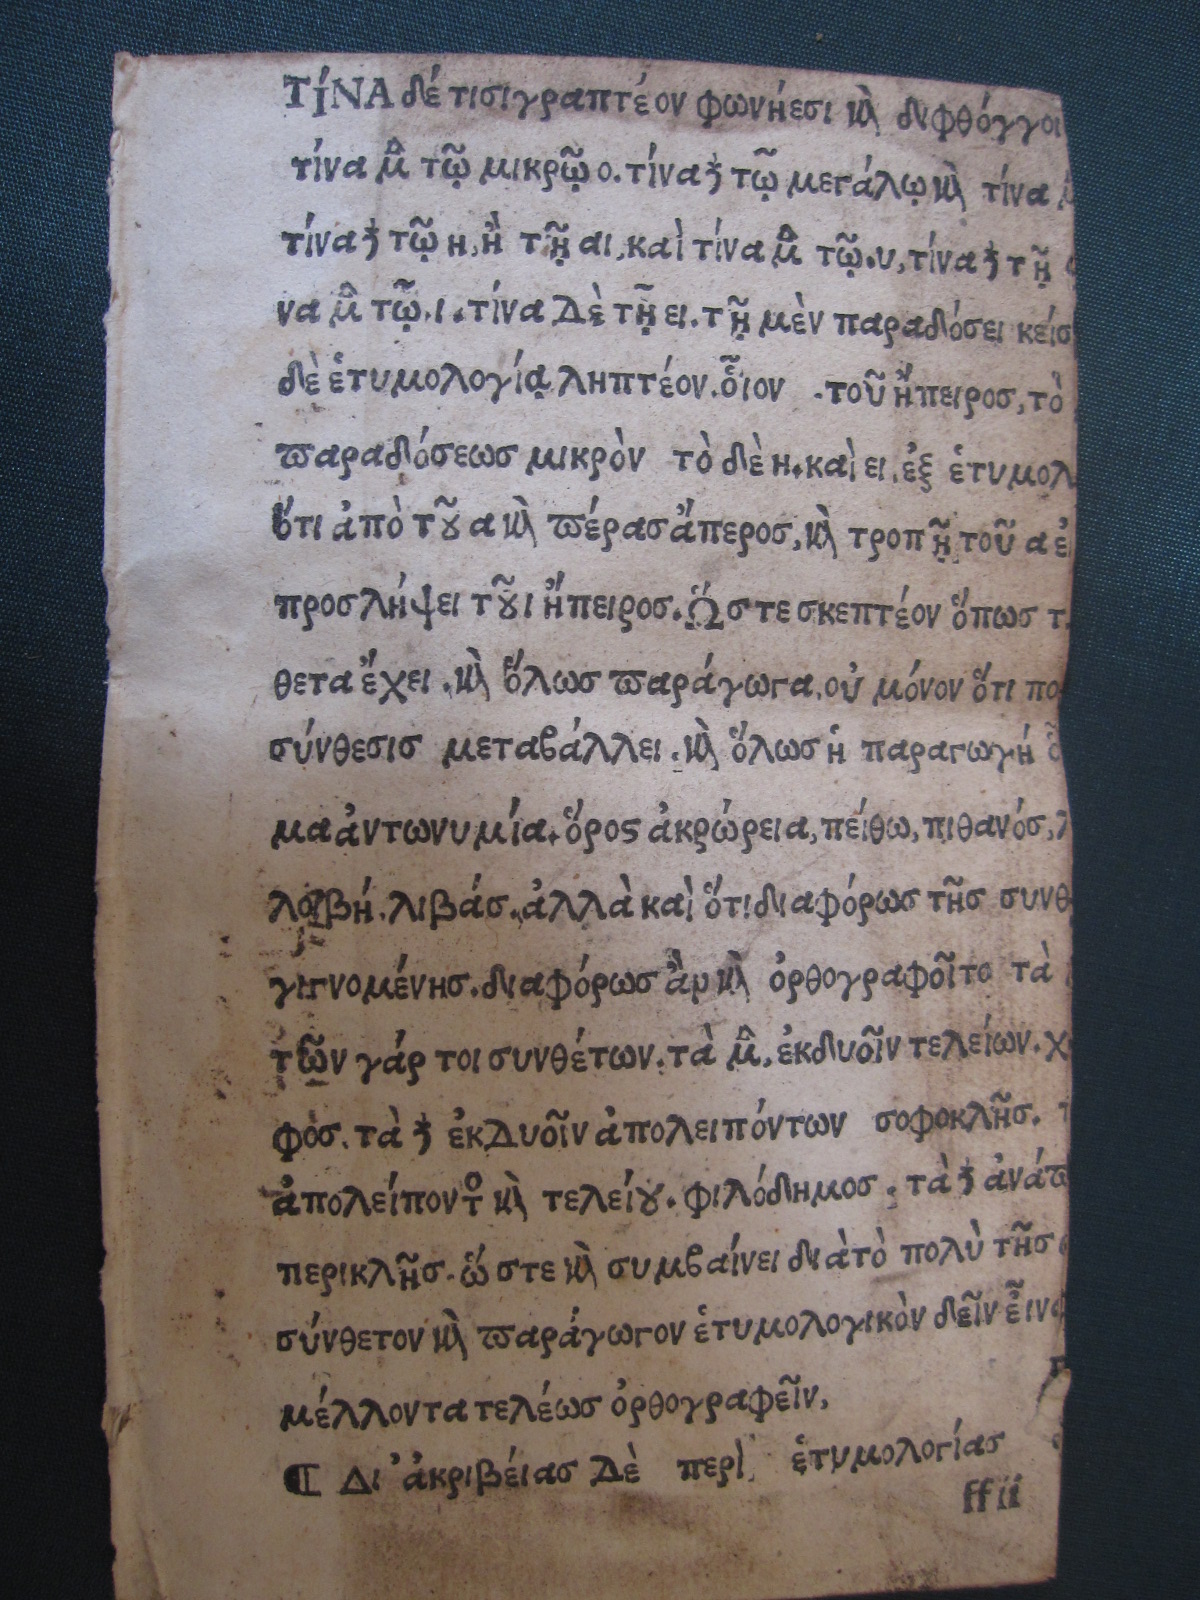 ΤΊΝΑ δέ τισι γραπτέον φωνήεσι καὶ διφθόγγοι
τίνα μὲν τῷ μικρῷ ο. τίνα δὲ τῷ μεγάλῳ καὶ τίνα
τίνα δὲ τῷ η, ἢ τῇ αι, καὶ τίνα μὲν τῷ. υ, τίνα δὲ τῇ
να μὲν τῷ. ι. τίνα Δὲ τῇ ει. τῇ μὲν παραδόσει κείσ
δὲ ἐτυμολογίᾳ ληπτέον. οἷον . τοῦ ἤπειροσ, τὸ
ϖαραδόσεωσ μικρὸν τὸ δὲ η. καὶ ει, ἐξ ἐτυμολ
ὅτι ἀπὸ τȣ͂ α καὶ ϖέρασ ἄπεροσ, καὶ τροπῇ τοῦ α ἐ
προσλήψει τȣ͂ ι ἤπειροσ. Ὥστε σκεπτέον ὅπωσ τ
θετα ἔχει . καὶ ὅλωσ ϖαράγωγα, οὐ μόνον ὅτι πο
σύνθεσισ μεταβάλλει . καὶ ὅλωσ ἡ παραγωγή
μα ἀντωνυμία. ὄρος ἀκρώρεια, πείθω, πιθανόσ, λ
λοιβή. λιβάσ. ἀλλὰ καὶ ὅτι διαφόρωσ τῆσ συνθ
γιγνομένησ. διαφόρωσ ἂν καὶ ὀρθογραφοῖτο τὰ
τῶν γάρ τοι συνθέτων. τὰ μὲν, ἐκ δυοῖν τελείων. χ
φὸσ. τὰ δὲ ἐκ Δυοῖν ἀπολειπόντων σοφοκλῆσ.
ἀπολείποντος καὶ τελείȣ. φιλόδημοσ . τὰ δὲ ἀνάϖ
περικλῆσ. ὥστε καὶ συμβαίνει διὰ τὸ πολὺ τῆσ
σύνθετον καὶ ϖαράγωγον ἐτυμολογικὸν δεῖν εἶνα
μέλλοντα τελέωσ ὀρθογραφεῖν,
¶ Δι' ἀκριβείασ Δὲ περὶ ἐτυμολογίασ
ff ii